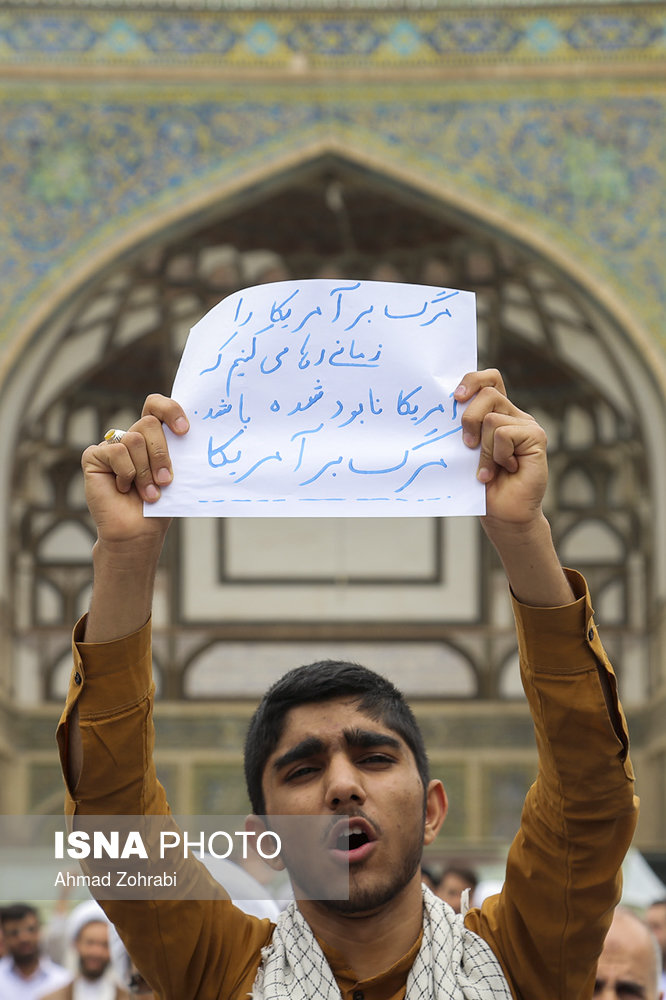 مرگ بر آمریکا را
زمانی رها می کنیم که
آمریکا نابود شده باشد.
مرگ بر آمریکا
ISNA PHOTO
Ahmad Zohrabi